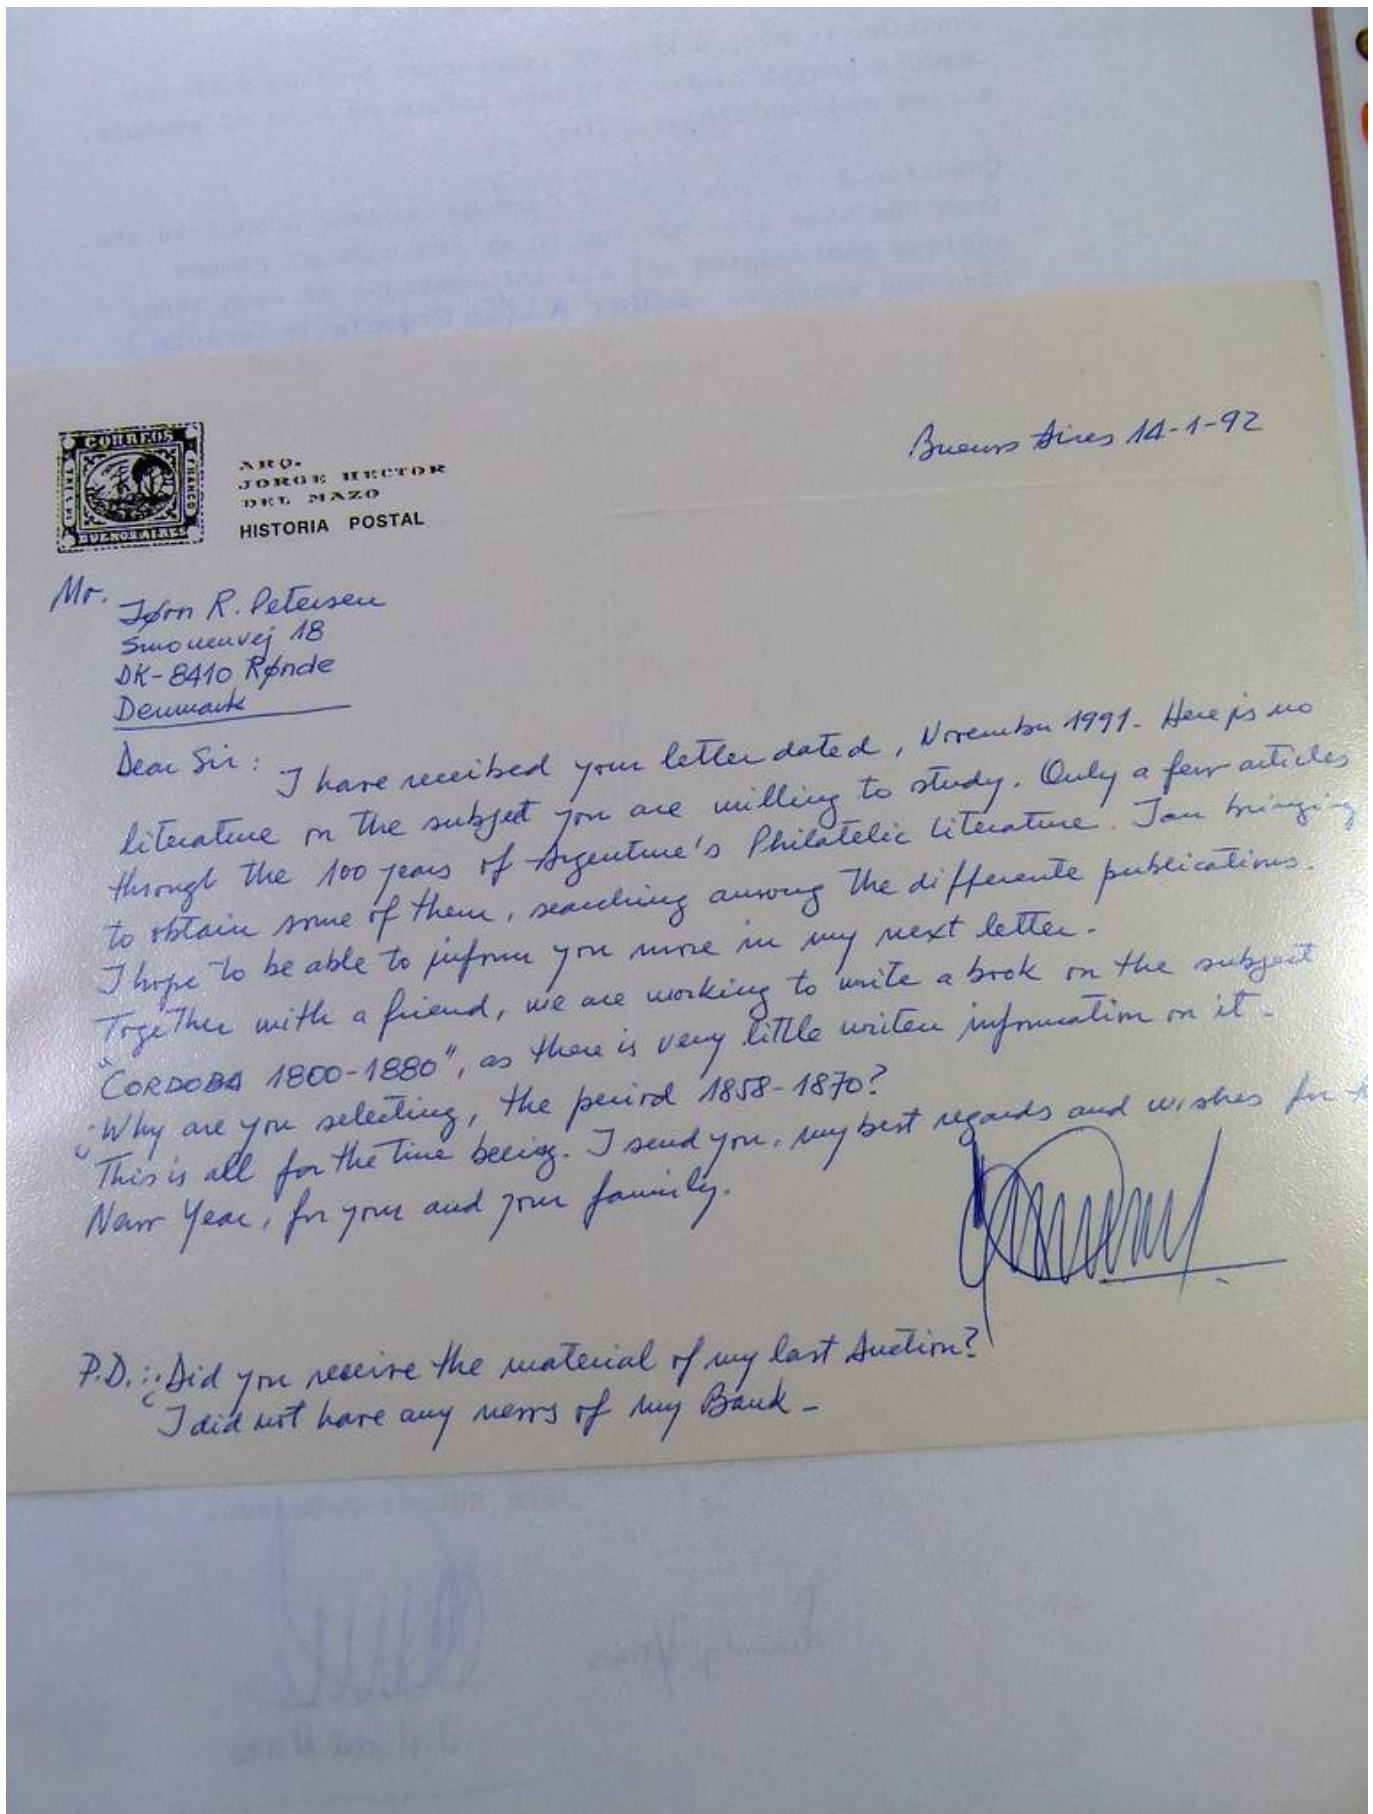 CORREOS
FRANCO
BUENOS AIRES
ARQ.
JORGE HECTOR
DEL MAZO
HISTORIA POSTAL
Buenos Aires 14-1-92
Mr.
Jørn R. Petersen
Smouenvej 18
DK-8410 Rønde
Denmark
Dear Sir: I have received your letter dated, November 1991- Here is no
literature on the subject you are willing to study. Only a few articles
through the 100 years of Argentine's Philatelic Literature. I am bringing
to obtain some of them, searching among the differente publications.
I hope to be able to inform you more in my next letter.-
Together with a friend, we are working to write a book on the subject
"CORDOBA 1800-1880", as there is very little writen information on it-
¿Why are you selecting, the period 1858-1870?
This is all for the time being. I send you, my best regards and wishes for
New Year, for your and your family.
P.D.: ¿Did you receive the material of my last Auction?
I did not have any news of my Bank-